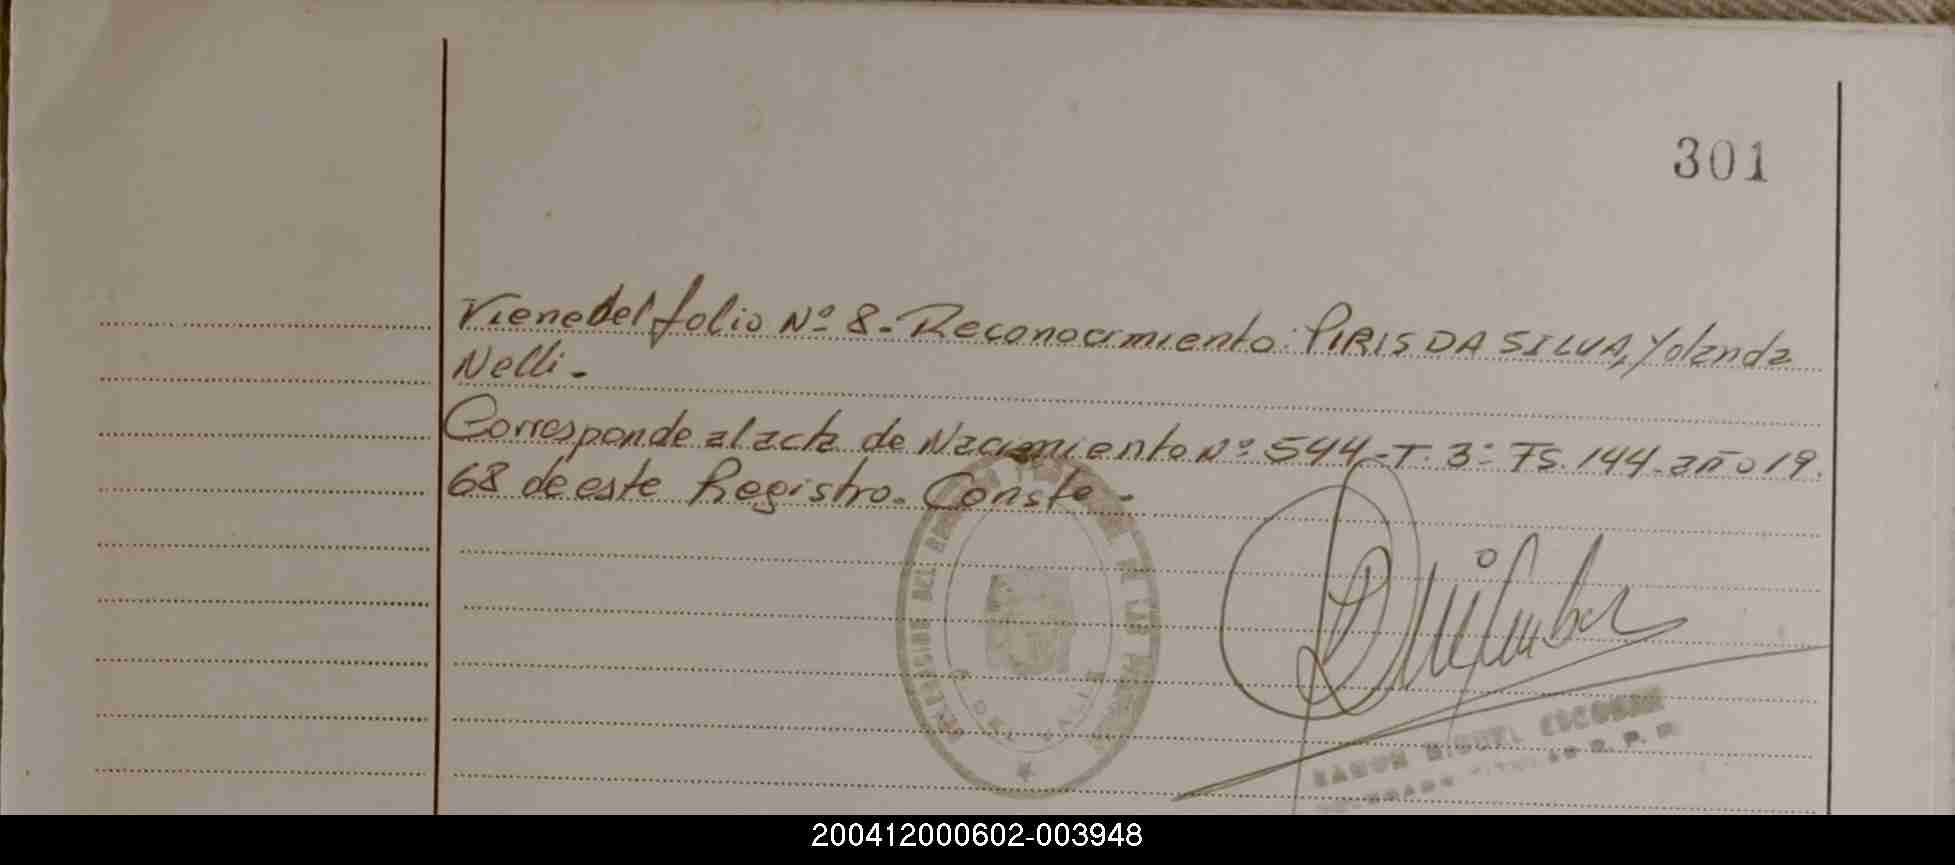 301
Viene del folio Nº 8.- Reconocimiento: PIRIS DA SILVA, Yolanda
Nelli.-
Corresponde al acta de Nacimiento Nº 544.-T. 3º Fs. 144.-año 19.
68 de este Registro. Conste.-
RAMON MIGUEL ESCOBAR
DELEGADO TITULAR R. P. P.
200412000602-003948